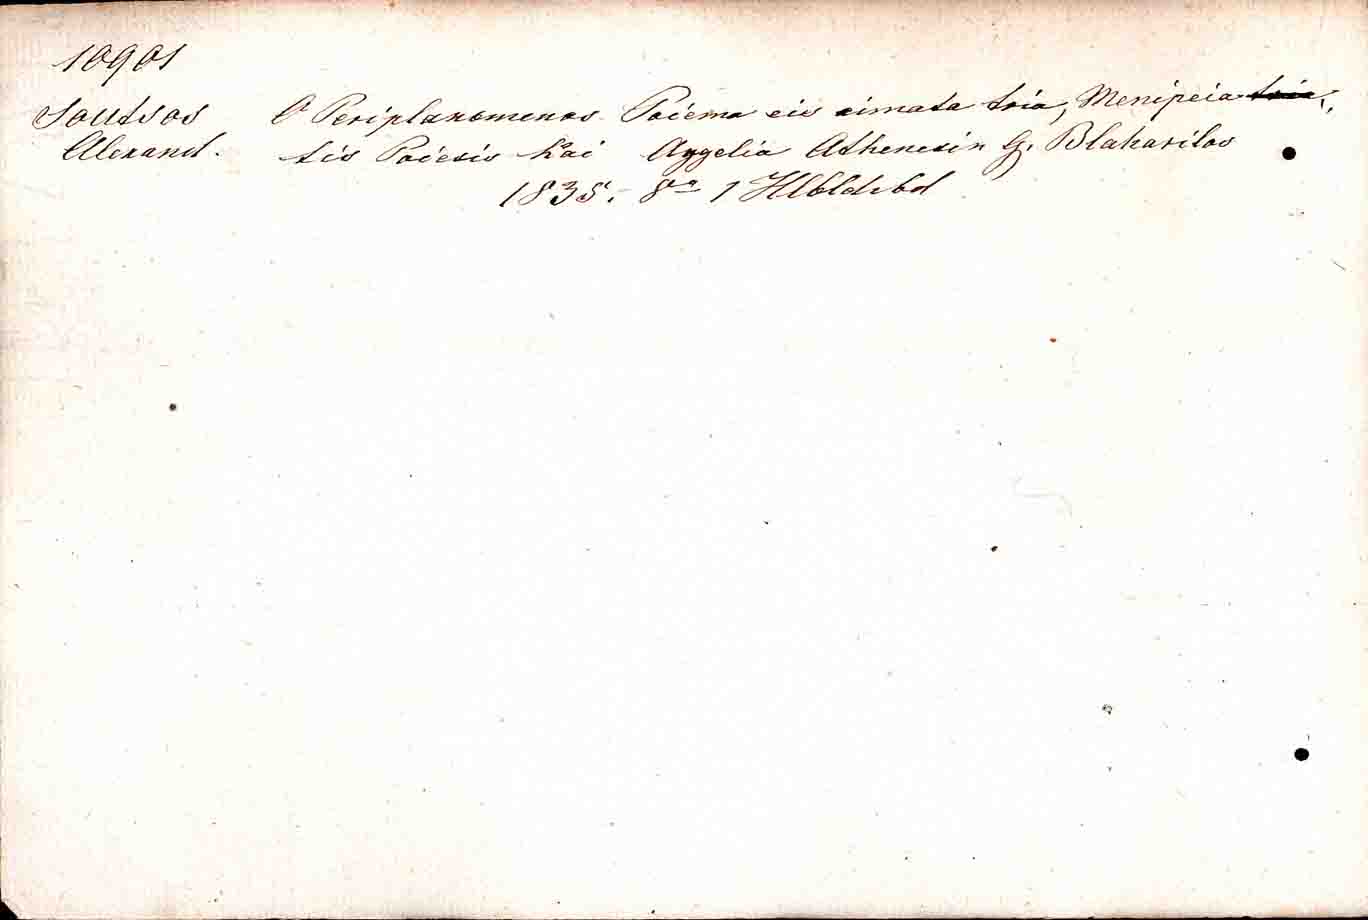 10901
Soutsos O Periplanomenos. Poiema eis aimata tria, Menipeia tria,
Alexand. tis Poiesis kai Aggelia Athenesin G. Blaharilos
1835. 8o 1 Hlbldrbd